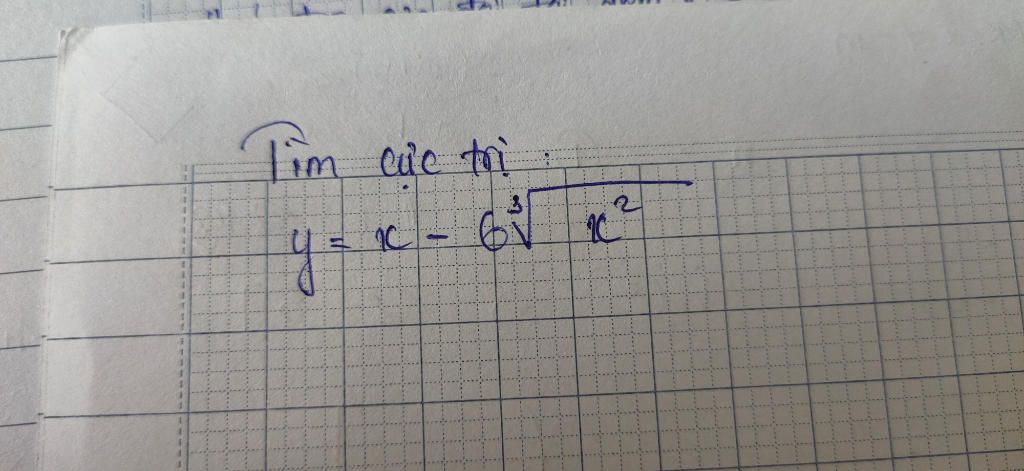 Tìm cực trị :
y = x - 6∛x²